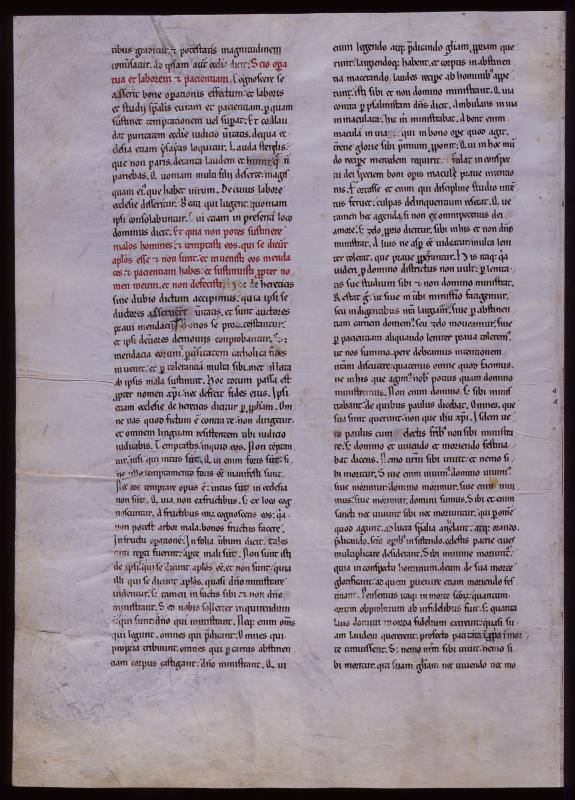 tibus graditur. & potestatis magnitudinem
ad ipsam aut dicit. Scio opa
tua et laborem & pacientiam. Cognoscere se
asserit bone opationis effectum. et laboris
et studii curam et pacientiam. p quam
sustinet temptationem uel supat. Et collau
dat puritatem eccłie iudicio ueritatis. de qua ec
clesia etiam loquitur. Lauda sterilis
que non paris. decanta laudem et que non
pariebas. Quoniam multi filii deserte. magis
quam eius que habet uirum. De cuius labore
ecclesie disseritur. Beati qui lugent. quoniam
ipsi consolabuntur. etiam in presenti loco
dominus dicit. Et quia non potes sustinere
malos homines. & temptasti eos. qui se dicunt
aplos esse & non sunt. et inuenisti eos menda
ces. & pacientiam habes. et sustinuisti ppter no
men meum. et non defecisti. de hereticis
sine dubio dictum accipimus. quia ipsi se
ductores asserere ueritatis. et sunt auctores
praui mendacii. Bonos se
et ipsi deteriores demoniis comprobantur.
mendacia eorum. catholica fides
inuenit. et p tolerantiam multa sibi illata
ab ipsis mala sustinuit. Hoc totum passa est
ppter nomen xpi. nec deficit fides eius. Ipsi
etiam ecclesie de hereticis dicitur p pphetam. Om
ne uas quod fictum est contra te. non dirigetur.
et omnem linguam resistentem tibi iudicio
iudicabis. Temptastis inquid eos. Non tempta
tur. nisi qui intus sunt. Qui enim foris sunt. si
ne temptamento foris esse manifesti sunt.
Nec eos temptare opus est. intus sunt in ecclesia
non sunt. Quia non ex fructibus. ex loco cog
noscuntur. A fructibus eorum cognoscetis eos. quia
non potest arbor mala. bonos fructus facere.
In fructu opationem. In folia uerbum dicit. tales
cum repti fuerint. aperte mali sunt. Non sunt isti
de ipsis qui se dicunt aplos esse. et non sunt. quia
illi qui se dicunt aplos. quasi dno ministrare
uidentur. tamen in factis sibi & non dno
ministrant. Sed nobis sollerter inquirendum
est. qui sunt dno qui ministrant. Neque enim oms
qui legunt. omnes qui pdicant. Omnes qui
propria tribuunt. omnes qui p carnis abstinen
tiam corpus castigant. dno ministrant. Qui
enim legendo atque pdicando gliam. ppriam que
runt. largiendoque habent. et corpus in abstinen
tia macerando. laudes recipe ab hominibus appe
tunt. isti sibi et non domino ministrant. Quia
contra p psalmistam dns dicit. Ambulans in uia
inmaculata. hic mihi ministrabat. Habent enim
maculam in uia qui in bono ope quod agit.
terrene glorie sibi pmium pponit. Qui in hoc mun
do recipe mercedem requirit. uiolat in conspe
tu dei speciem boni opis macule praue intentio
nis. Fortasse et enim qui discipline studio inten
tus feruet. culpas delinquentium resecat. Que
tamen hec agenda si non ex omnipotentis dei
amore. sed zelo pprio dicetur. sibi in his et non dno
ministrat. Alius ne asper esse uideatur. multa leni
ter tolerat. que praue pspiciuntur. In his itaque qua
uidet. p domino districtus non uult. p lenita
tis sue studium sibi & non domino ministrat.
Restat igitur. ut siue in uerbi ministerio satagimur.
seu indigentibus nostra largimur. siue p abstinen
tiam carnem domemus. seu zelo moueamur. siue
p pacientiam aliquando leniter praua toleremus.
ut nos summo pere debeamus intentionem
nostram discutere. quatenus omne quod facimus.
ne in his que agimus nobis pocius quam domino
ministremus. Non enim domino. sed sibi minis
trabant. de quibus paulus dicebat. Omnes. que
sua sunt querunt. non que ihu xpi. Idem ue
ro paulus cum electis fratribus non sibi ministra
re. sed domino et uiuendo et moriendo festina
bat dicens. Nemo nostrum sibi uiuit. et nemo si
bi moritur. Siue enim uiuimus. domino uiuimus.
siue morimur. domino morimur. siue enim uiui
mus. siue morimur. domini sumus. Sibi et enim
sancti nec uiuunt. sibi nec moriuntur. qui p omne
quod agunt. ad lucra anhelant. atque orando.
pdicando. scis opibus insistendo. celestis patrie ciues
multiplicare desiderant. Sibi minime moriuntur.
quia in conspectu hominum. deum de sua morte
glorificant. ad quem puenire etiam moriendo fes
tinant. Pensemus itaque in morte scorum. quantum
eorum obprobrium ab infidelibus fuit. sed quanta
laus domini in corda fidelium excreuit. quasi su
am laudem quererent. profecto
te timuissent. Sed nemo nostrum sibi uiuit. nemo si
bi moritur. qui suam gliam nec uiuendo nec mo